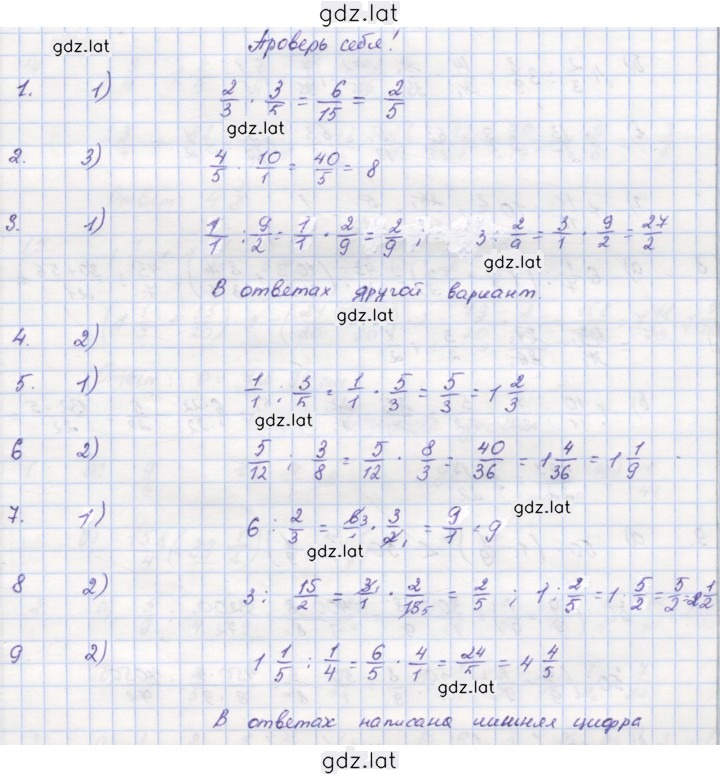 gdz.lat
gdz.lat Проверь себя!
1. 1) 2/3 · 3/5 = 6/15 = 2/5
gdz.lat
2. 3) 4/5 · 10/1 = 40/5 = 8
3. 1) 1/1 : 9/2 = 1/1 · 2/9 = 2/9 ; 3 : 2/9 = 3/1 · 9/2 = 27/2
gdz.lat
В ответах другой вариант.
gdz.lat
4. 2)
5. 1) 1/1 : 3/5 = 1/1 · 5/3 = 5/3 = 1 2/3
gdz.lat
6 2) 5/12 : 3/8 = 5/12 · 8/3 = 40/36 = 1 4/36 = 1 1/9
gdz.lat
7. 1) 6 : 2/3 = 6 3/1 · 3/2 1 = 9/1 = 9
gdz.lat
8 2) 3 : 15/2 = 3 1/1 · 2/15 5 = 2/5 ; 1 : 2/5 = 1 · 5/2 = 5/2 = 2 1/2
9 2) 1 1/5 : 1/4 = 6/5 · 4/1 = 24/5 = 4 4/5
gdz.lat
В ответах написана лишняя цифра
gdz.lat